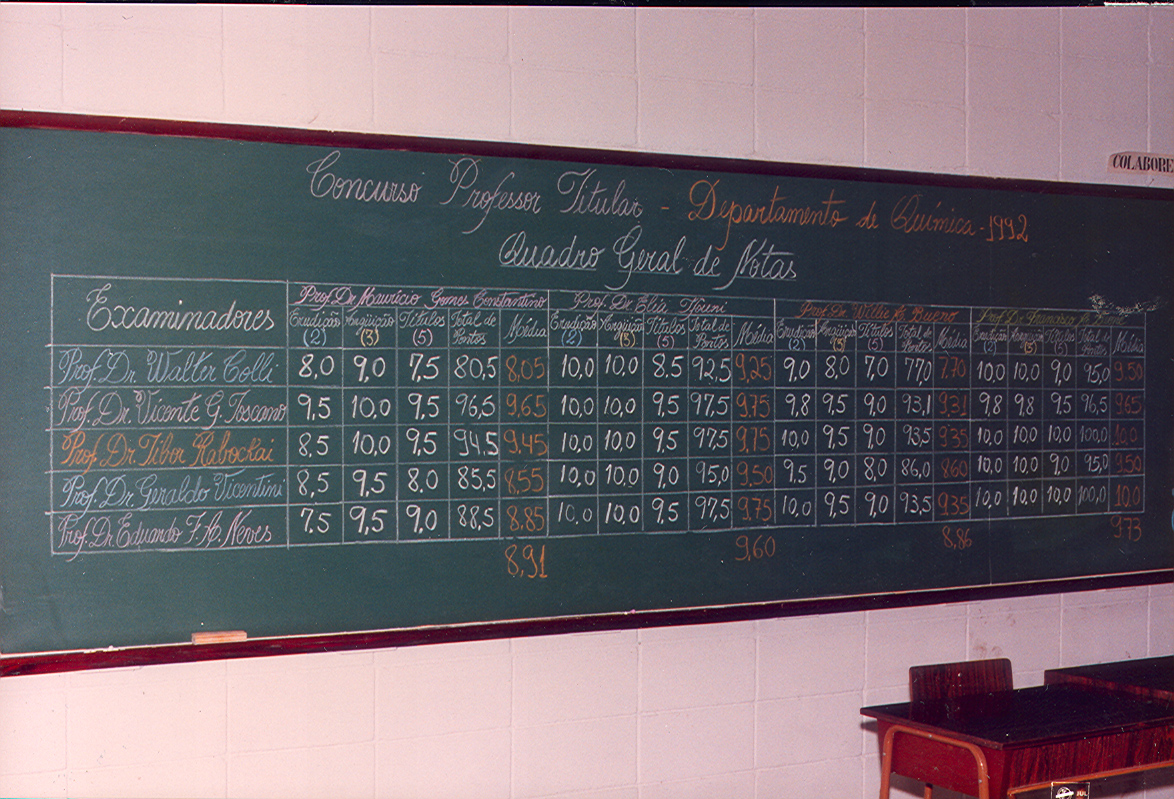 COLABORE
Concurso Professor Titular - Departamento de Química - 1992
Quadro Geral de Notas
Examinadores Prof. Dr. Maurício Gomes Constantino Prof. Dr. Elia Prof. Dr.
Erudição (2) Argüição (3) Títulos (5) Total de Pontos Média Erudição (2) Argüição (3) Títulos (5) Total de Pontos Média Erudição (2) Argüição (3) Títulos (5) Total de Pontos Média Erudição (2) Argüição (3) Títulos Total de Pontos Média
Prof. Dr. Walter Colli 8,0 9,0 7,5 80,5 8,05 10,0 10,0 8.5 92,5 9,25 9,0 8,0 7,0 77,0 7,70 10,0 10,0 9,0 95,0 9,50
Prof. Dr. Vicente G. Toscano 9,5 10,0 9,5 96,5 9,65 10,0 10,0 9,5 97,5 9,75 9,8 9,5 9,0 93,1 9,31 9,8 9,8 9,5 96,5 9,65
Prof. Dr. Tibor Rabockai 8,5 10,0 9,5 94,5 9,45 10,0 10,0 9,5 97,5 9,75 10,0 9,5 9,0 93,5 9,35 10,0 10,0 10,0 100,0 10,0
Prof. Dr. Geraldo Vicentini 8,5 9,5 8,0 85,5 8,55 10,0 10,0 9,0 95,0 9,50 9,5 9,0 8,0 86,0 8,60 10,0 10,0 9,0 95,0 9,50
Prof. Dr. Eduardo F. A. Neves 7,5 9,5 9,0 88,5 8,85 10,0 10,0 9,5 97,5 9,75 10,0 9,5 9,0 93,5 9,35 10,0 10,0 10,0 100,0 10,0
8,91 9,60 8,86 9,73